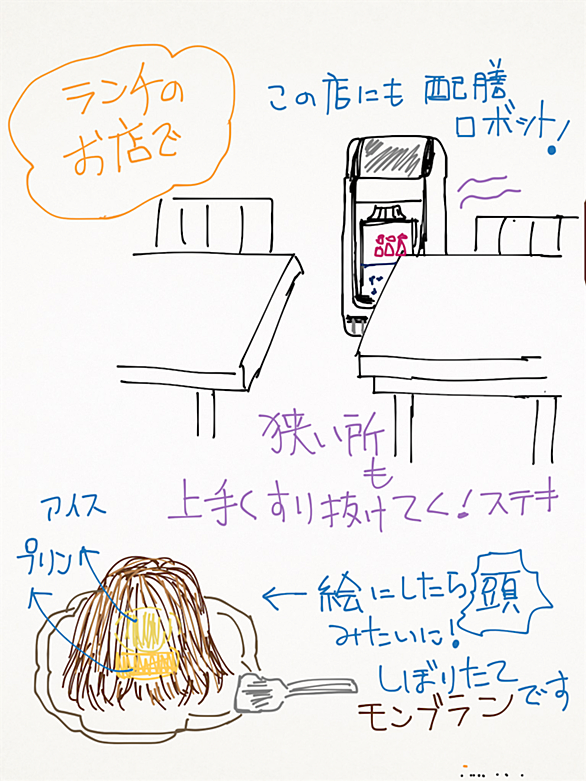 ランチの
お店で
この店にも 配膳
ロボット!
狭い所
も
上手くすり抜けてく!ステキ
アイス
プリン
← 絵にしたら 頭
みたいに!
しぼりたて
モンブランです